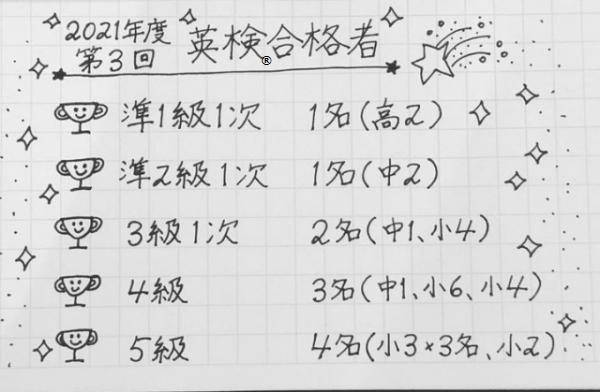 2021年度
第3回 英検®合格者
準1級1次 1名(高2)
準2級1次 1名(中2)
3級1次 2名(中1、小4)
4級 3名(中1、小6、小4)
5級 4名(小3×3名、小2)